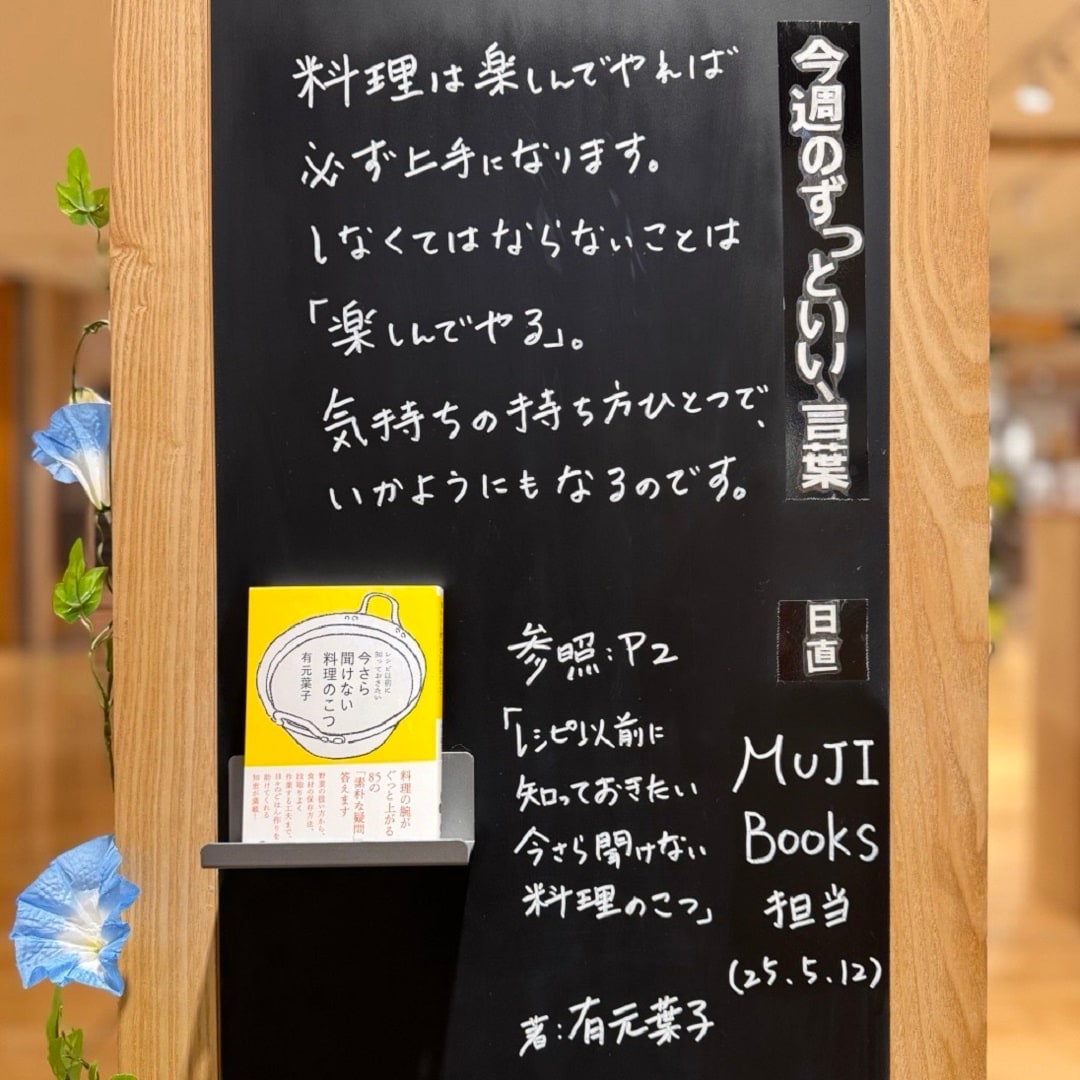 今週のずっといい、言葉
料理は楽しんでやれば
必ず上手になります。
しなくてはならないことは
「楽しんでやる」。
気持ちの持ち方ひとつで、
いかようにもなるのです。
日直
MUJI
BOOKS
担当
(25.5.12)
参照：P2
「レシピ以前に
知っておきたい
今さら聞けない
料理のこつ」
著：有元葉子
レシピ以前に
知っておきたい
今さら
聞けない
料理のこつ
有元葉子
料理の腕が
ぐっと上がる
85の
「素朴な疑問」
答えます
野菜の扱い方から、
食材の保存方法、
段取りよく
作業する工夫まで、
日々のごはん作りを
助けてくれる
知恵が満載！